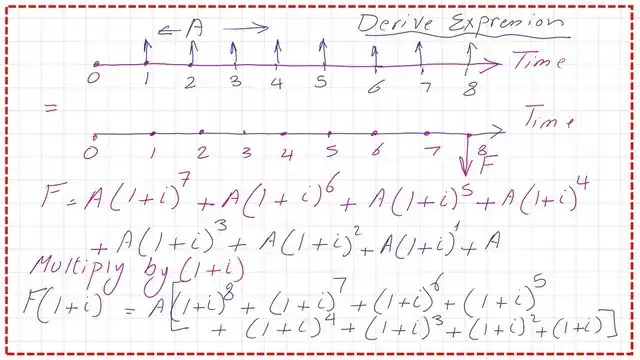 ← A → Derive Expression
0 1 2 3 4 5 6 7 8 Time
=
Time
0 1 2 3 4 5 6 7 8
F
F = A(1+i)^7 + A(1+i)^6 + A(1+i)^5 + A(1+i)^4
+ A(1+i)^3 + A(1+i)^2 + A(1+i)^1 + A
Multiply by (1+i)
F(1+i) = A[(1+i)^8 + (1+i)^7 + (1+i)^6 + (1+i)^5
+ (1+i)^4 + (1+i)^3 + (1+i)^2 + (1+i)]